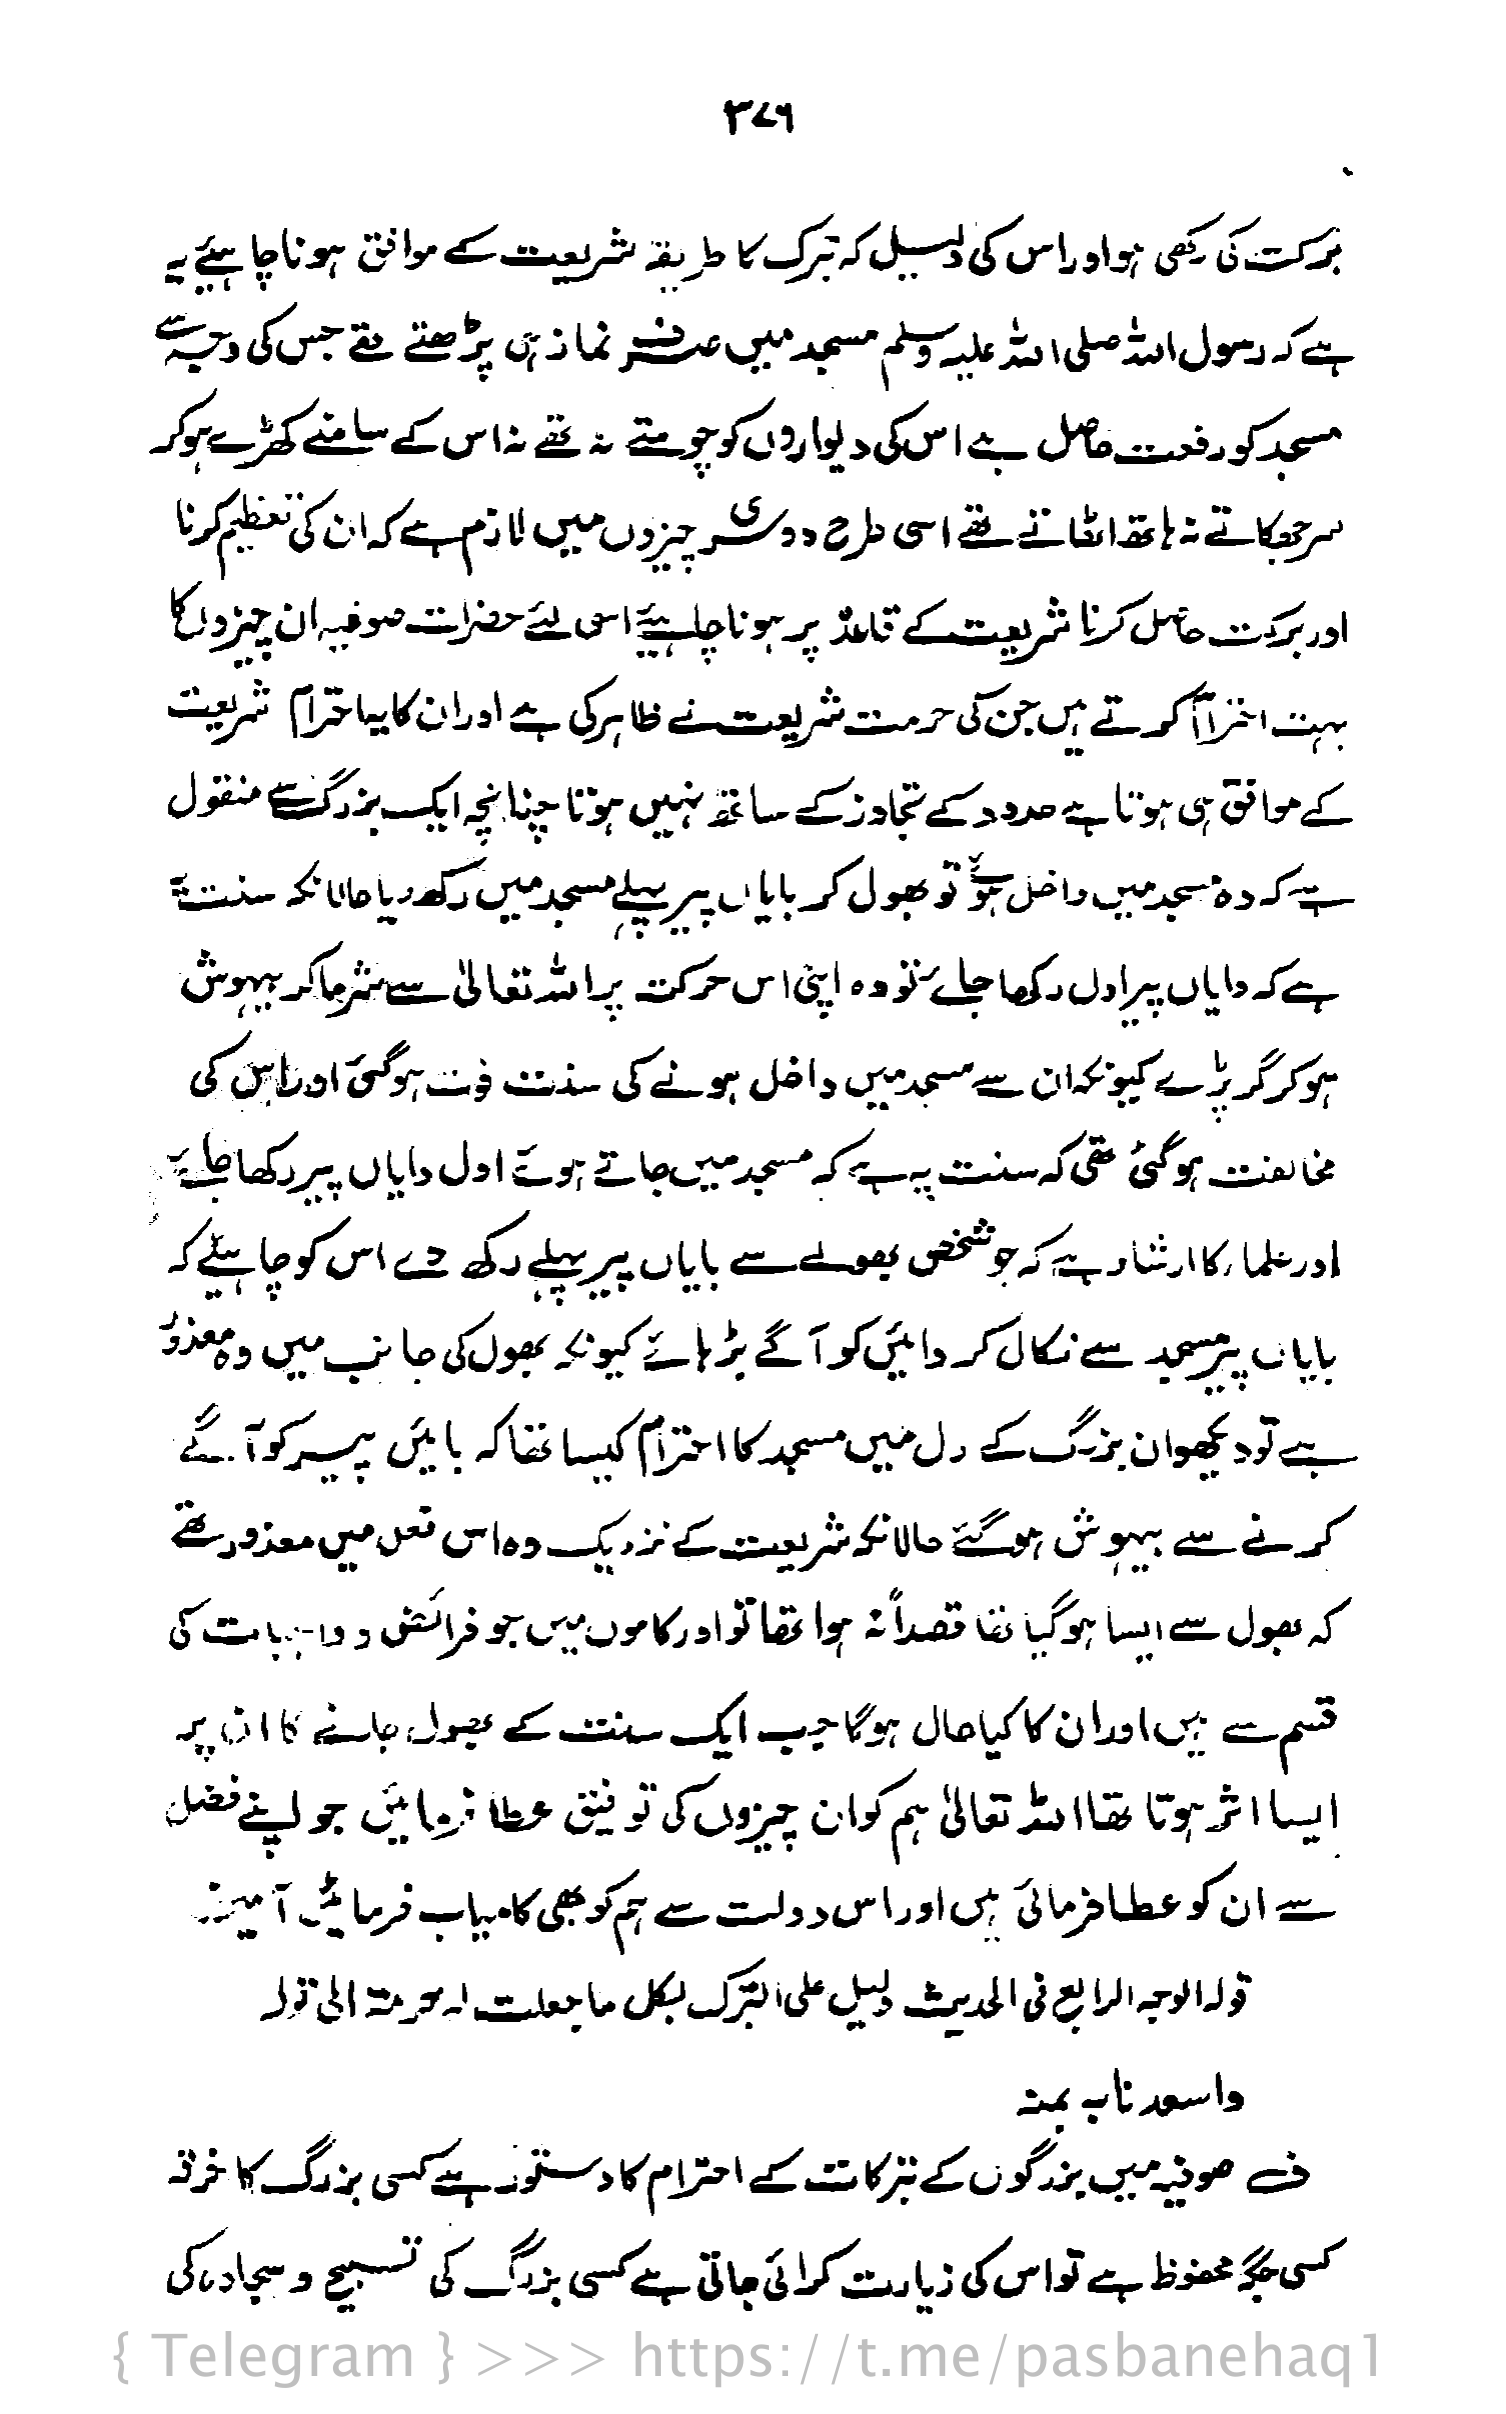 ۳۷۶
برکت کی رکھی ہو اور اس کی دلیل کہ تبرک کا طریقہ شریعت کے موافق ہونا چاہیئے یہ
ہے کہ رسول اللہ صلی اللہ علیہ وسلم مسجد میں صرف نماز ہی پڑھتے تھے جس کی وجہ سے
مسجد کو رفعت حاصل ہے اس کی دیواروں کو چومتے نہ تھے نہ اس کے سامنے کھڑے ہو کر
سر جھکاتے نہ ہاتھ اٹھاتے تھے اسی طرح دوسری چیزوں میں لازم ہے کہ ان کی تعظیم کرنا
اور برکت حاصل کرنا شریعت کے قاعدہ پر ہونا چاہیئے اسی لئے حضرات صوفیہ ان چیزوں کا
بہت احترام کرتے ہیں جن کی حرمت شریعت نے ظاہر کی ہے اور ان کا یہ احترام شریعت
کے موافق ہی ہوتا ہے حدود کے تجاوز کے ساتھ نہیں ہوتا چنانچہ ایک بزرگ سے منقول
ہے کہ وہ مسجد میں داخل ہوئے تو بھول کر بایاں پیر پہلے مسجد میں رکھ دیا حالانکہ سنت یہ
ہے کہ دایاں پیر اول رکھا جائے تو وہ اپنی اس حرکت پر اللہ تعالیٰ سے شرما کر بیہوش
ہو کر گر پڑے کیونکہ ان سے مسجد میں داخل ہونے کی سنت فوت ہو گئی اور اس کی
مخالفت ہو گئی تھی کہ سنت یہ ہے کہ مسجد میں جاتے ہوئے اول دایاں پیر رکھا جائے
اور علماء کا ارشاد ہے کہ جو شخص بھولے سے بایاں پیر پہلے رکھ دے اس کو چاہیئے کہ
بایاں پیر مسجد سے نکال کر دائیں کو آگے بڑہائے کیونکہ بھول کی جانب میں وہ معذور
ہے تو دیکھو ان بزرگ کے دل میں مسجد کا احترام کیسا تھا کہ بائیں پیر کو آگے
کرنے سے بیہوش ہو گئے حالانکہ شریعت کے نزدیک وہ اس فعل میں معذور تھے
کہ بھول سے ایسا ہو گیا تھا قصداً نہ ہوا تھا تو اور کاموں میں جو فرائض و واجبات کی
قسم سے ہیں اور ان کا کیا حال ہوگا جب ایک سنت کے بھول جانے کا ان پر
ایسا اثر ہوتا تھا اللہ تعالیٰ ہم کو ان چیزوں کی توفیق عطا فرمائیں جو اپنے فضل
سے ان کو عطا فرمائی ہیں اور اس دولت سے ہم کو بھی کامیاب فرمائیں آمین
قولہ الوجہ الرابع فی الحدیث دلیل علی التبرک لکل ما جعلت لہ حرمتہ الی قولہ
واسعدنا بہ بمنہ
ف صوفیہ میں بزرگوں کے تبرکات کے احترام کا دستور ہے کسی بزرگ کا خرقہ
کسی جگہ محفوظ ہے تو اس کی زیارت کرائی جاتی ہے کسی بزرگ کی تسبیح و سجادہ کی
{ Telegram } >>> https://t.me/pasbanehaq1